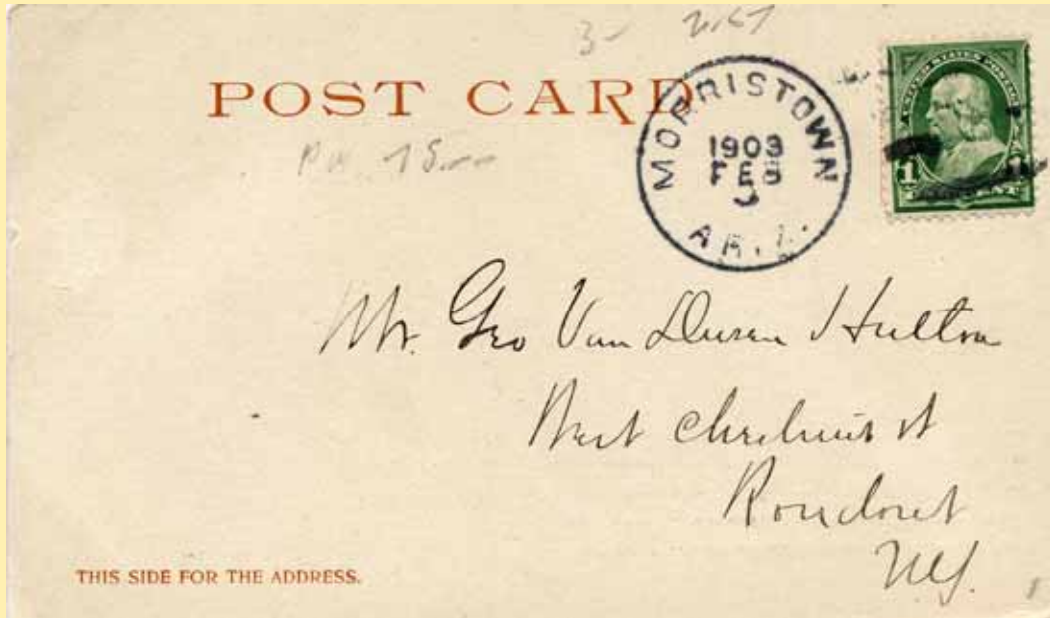 POST CARD
MORRISTOWN
1903
FEB
UNITED STATES POSTAGE
1
CENT
Mr. Geo Van Dusen Hutton
West st
Rondout
N.Y.
THIS SIDE FOR THE ADDRESS.